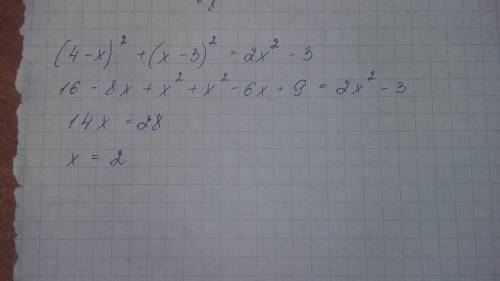 (4-x)² + (x-3)² = 2x² - 3
16 - 8x + x² + x² - 6x + 9 = 2x² - 3
14x = 28
x = 2